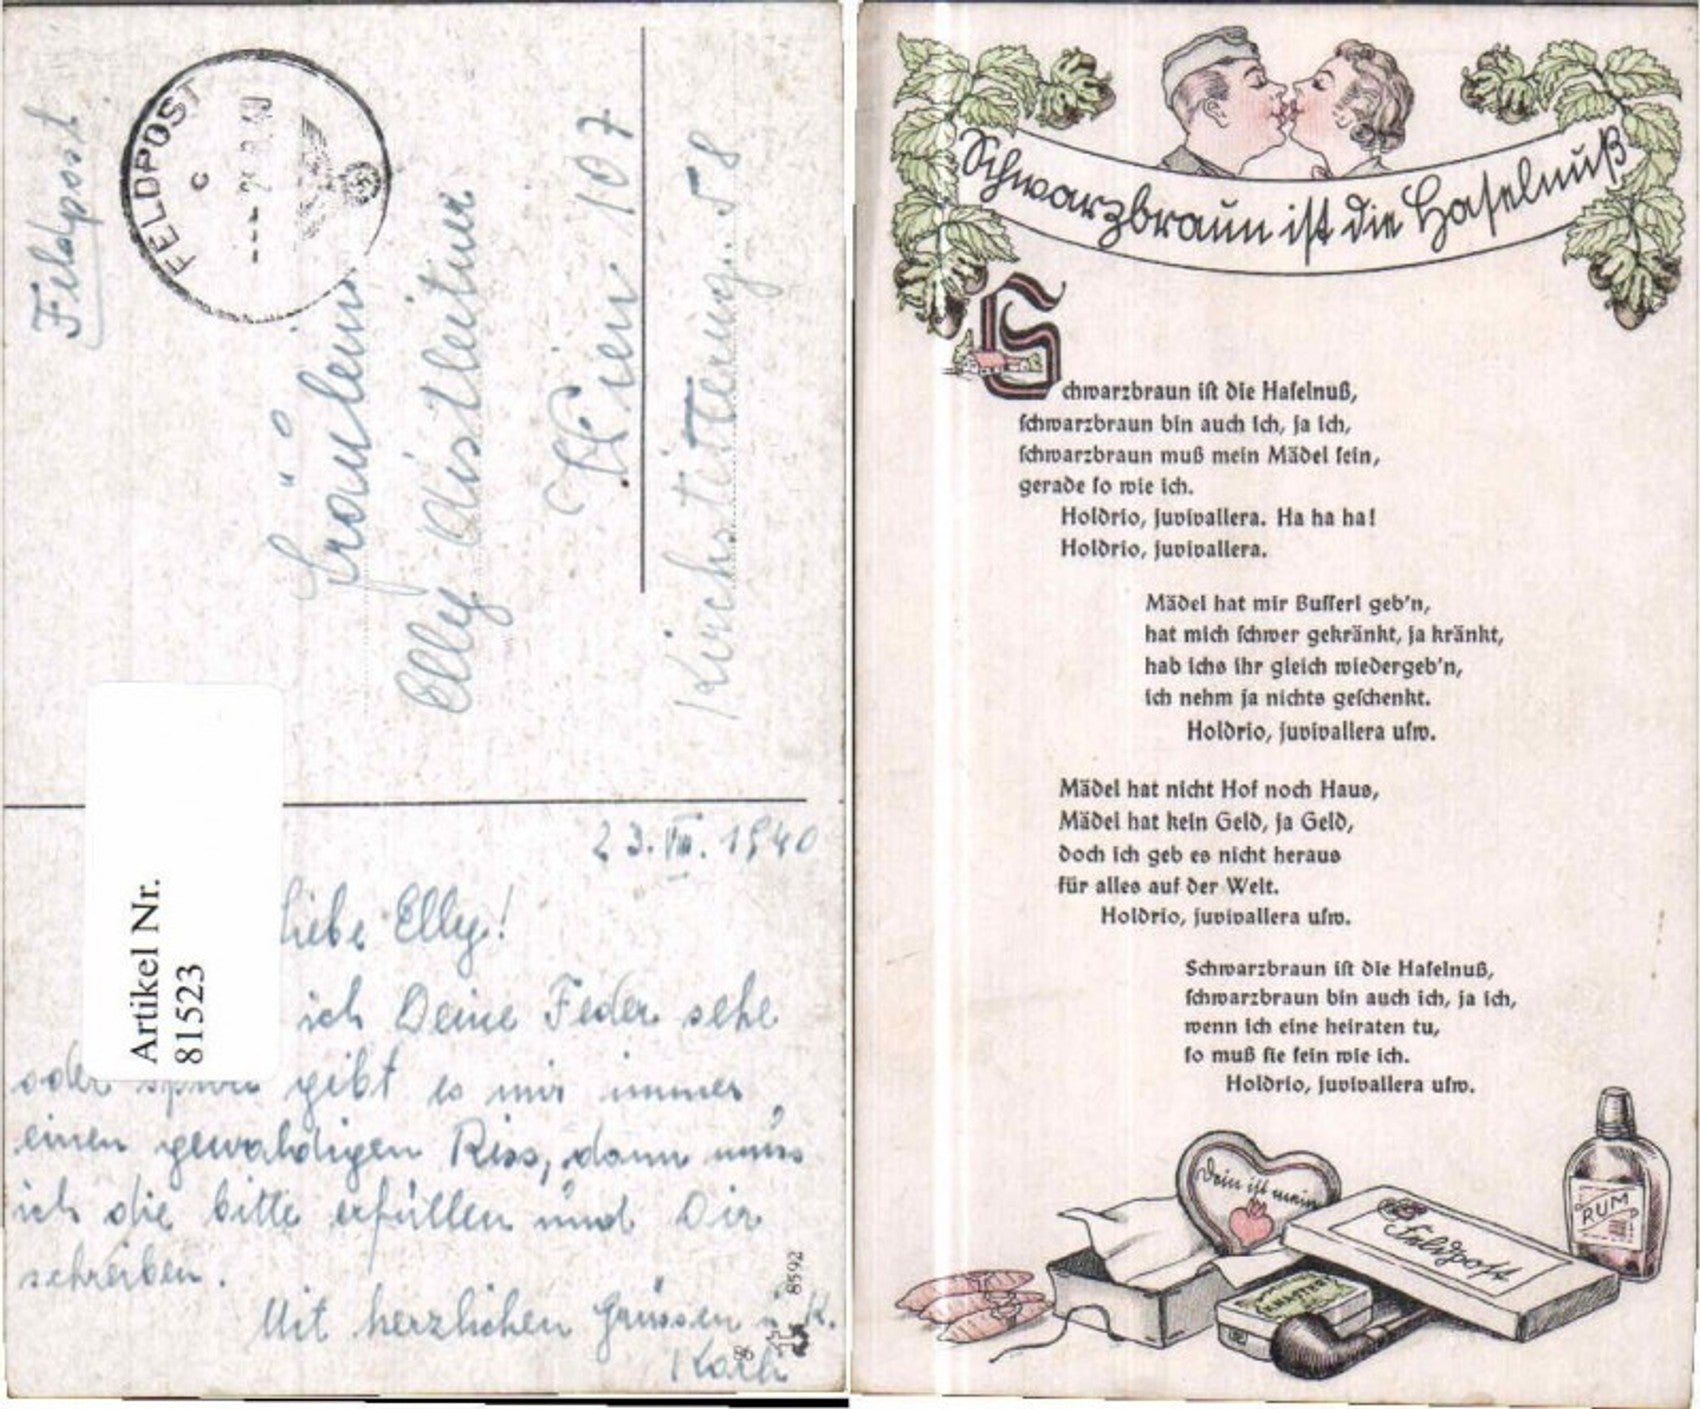 Feldpost
FELDPOST
c
Fräulein
Elly Aistleitner
Wien 107
Kirchstetterng. 58
Artikel Nr.
81523
23. VIII. 1940
Liebe Elly!
ich Deine Feder sehe
oder spüre gibt es mir immer
einen gewaldigen Riss, dann muss
ich die bitte erfüllen und Dir
schreiben.
Mit herzlichen Grüssen u. K.
Karli
8592
Schwarzbraun ist die Haselnuß
Schwarzbraun ist die Haselnuß,
schwarzbraun bin auch ich, ja ich,
schwarzbraun muß mein Mädel sein,
gerade so wie ich.
Holdrio, juvivallera. Ha ha ha!
Holdrio, juvivallera.
Mädel hat mir Busserl geb'n,
hat mich schwer gekränkt, ja kränkt,
hab ichs ihr gleich wiedergeb'n,
ich nehm ja nichts geschenkt.
Holdrio, juvivallera usw.
Mädel hat nicht Hof noch Haus,
Mädel hat kein Geld, ja Geld,
doch ich geb es nicht heraus
für alles auf der Welt.
Holdrio, juvivallera usw.
Schwarzbraun ist die Haselnuß,
schwarzbraun bin auch ich, ja ich,
wenn ich eine heiraten tu,
so muß sie sein wie ich.
Holdrio, juvivallera usw.
Dein ist mein
Feldpost
RUM